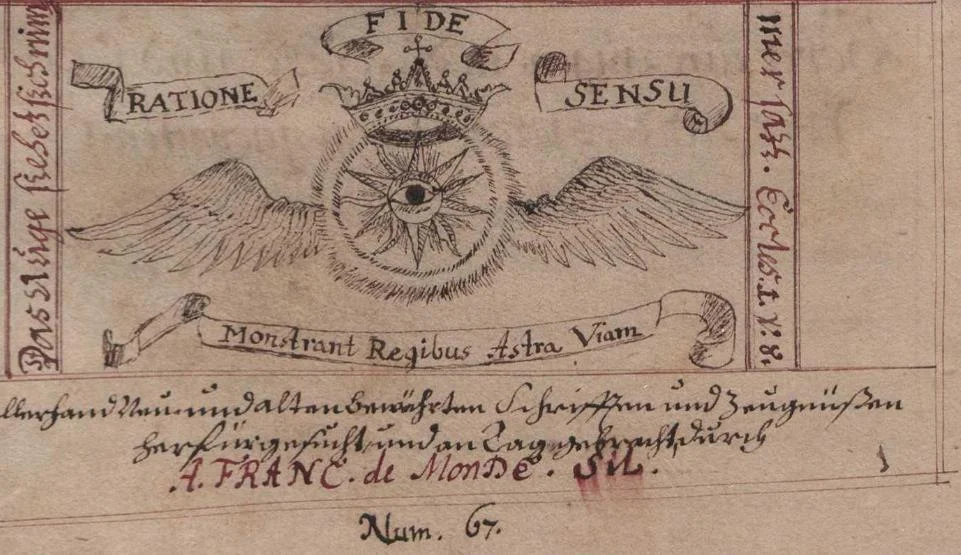 FIDE
RATIONE
SENSU
Das Auge siehet sich nim
mer satt. Eccles. 1. v: 8.
Monstrant Regibus Astra Viam
llerhand Neu- und alten bewährten Schrifften und Zeugnüßen
herfür gesucht, und an Tag gebracht, durch
A. FRANC. de MONDE. SIL.
1
Num. 67.